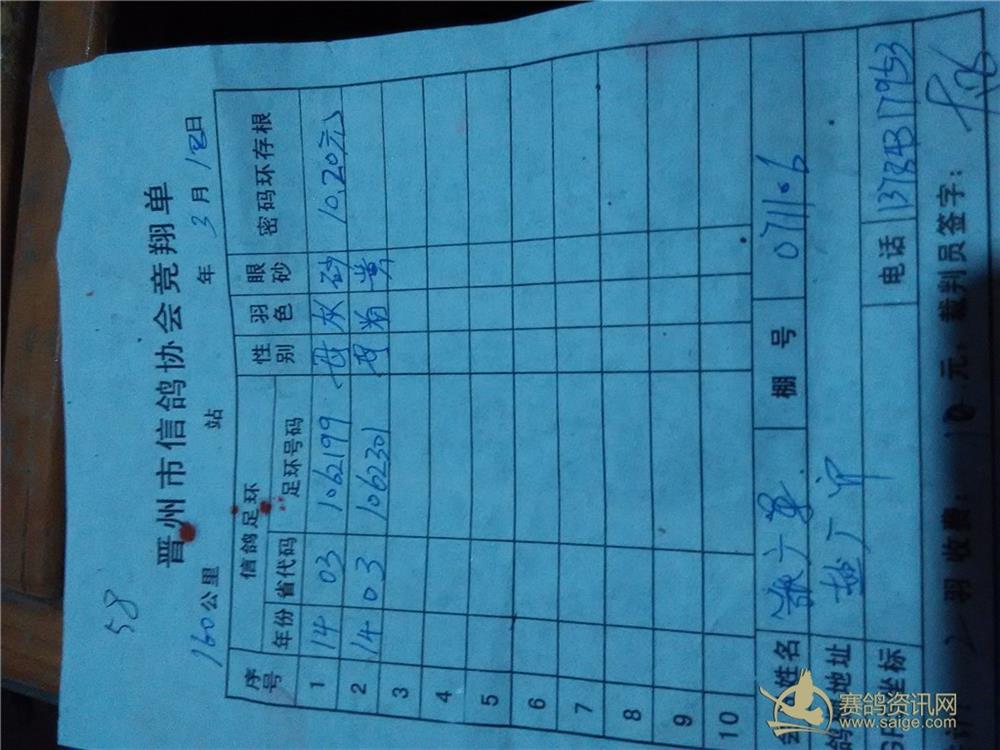 58
晋州市信鸽协会竞翔单
160公里 站 年 3月1日
序号 信鸽足环 性别 羽色 眼砂 密码环存根
年份 省代码 足环号码
1 14 03 1062199 母 灰 砂 10.20元
2 14 03 1062301 黄
3
4
5
6
7
8
9
10
姓名 张广 棚号 071106
地址
坐标 电话 13784317953
羽 收费: 10 元. 裁判员签字:
赛鸽资讯网
www.saige.com